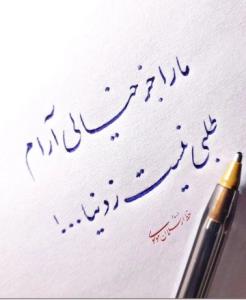 ما را جز خیالی آرام
طلبی نیست ز دنیا...!